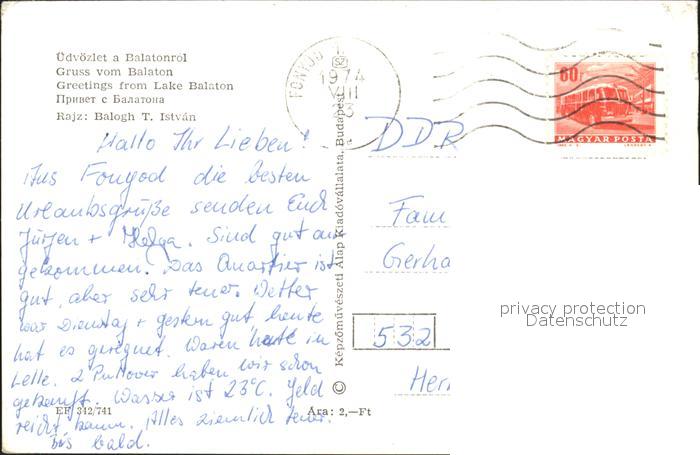 Üdvözlet a Balatonról
Gruss vom Balaton
Greetings from Lake Balaton
Привет с Балатона
Rajz: Balogh T. István
Hallo Ihr Lieben!
Aus Fonyod die besten
Urlaubsgrüße senden Euch
Jürgen + Helga. Sind gut an
gekommen. Das Quartier ist
gut, aber sehr teuer. Wetter
war Dienstag + gestern gut, heute
hat es geregnet. Waren heute in
Lelle. 2 Pullover haben wir schon
gekauft. Wasser ist 23°C. Geld
reicht kaum. Alles ziemlich teuer.
Bis bald.
EF 312/741
Ara: 2,—Ft
© Képzőművészeti Alap Kiadóvállalata, Budapest
FONYÓD 1.
1974
VIII
23
60
MAGYAR POSTA
DDR
Fam
Gerha
532
Her
privacy protection
Datenschutz